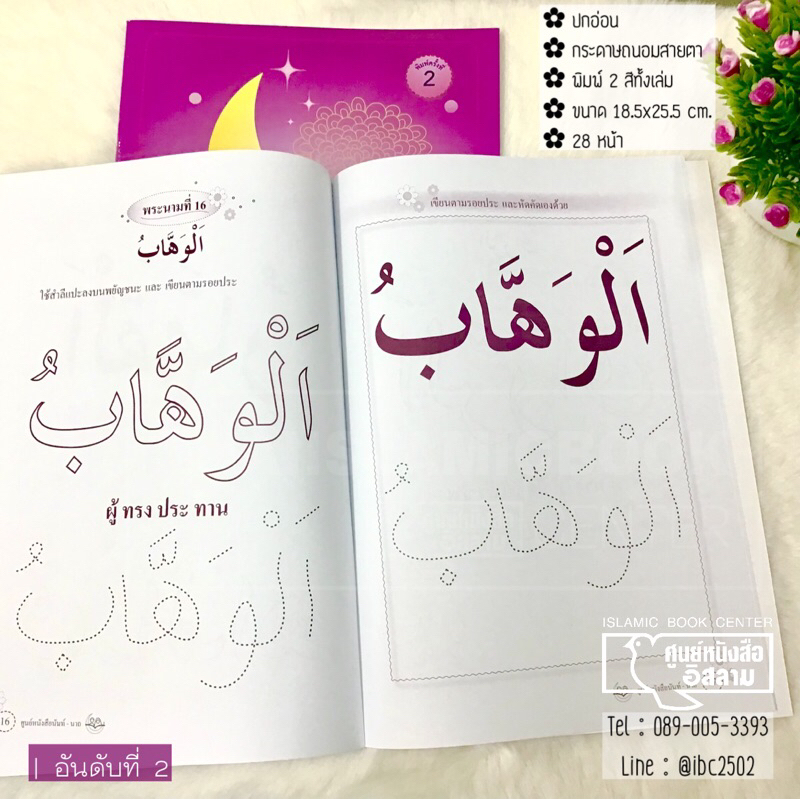 ✽ ปกอ่อน
✽ กระดาษถนอมสายตา
✽ พิมพ์ 2 สีทั้งเล่ม
✽ ขนาด 18.5x25.5 cm.
✽ 28 หน้า
พิมพ์ครั้งที่
2
พระนามที่ 16
اَلْوَهَّابُ
ใช้สำลีแปะลงบนพยัญชนะ และ เขียนตามรอยประ
اَلْوَهَّابُ
ผู้ ทรง ประ ทาน
اَلْوَهَّابُ
16 ศูนย์หนังสือบันฑ์ - นาย
เขียนตามรอยประ และหัดคัดเองด้วย
اَلْوَهَّابُ
اَلْوَهَّابُ
ISLAMIC BOOK CENTER
ศูนย์หนังสือ
อิสลาม
Tel : 089-005-3393
Line : @ibc2502
| อันดับที่ 2